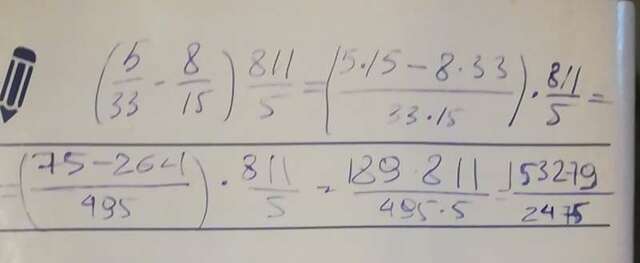 (5/33 - 8/15) 811/5 = (5·15 - 8·33 / 33·15) · 811/5 =
= (75 - 264 / 495) · 811/5 = 189·811 / 495·5 = 153279 / 2475